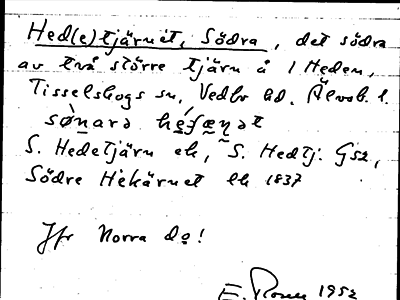 Hed(e)tjärnet, Södra, det södra
av två större tjärn å l Heden,
Tisselskogs sn, Vedbo hd. Älvsb. l.
S. Hedetjärn ek, S. Hedtj. Gsz,
Södre Hekärnet lk 1837
Jfr Norra do!
E. 1952